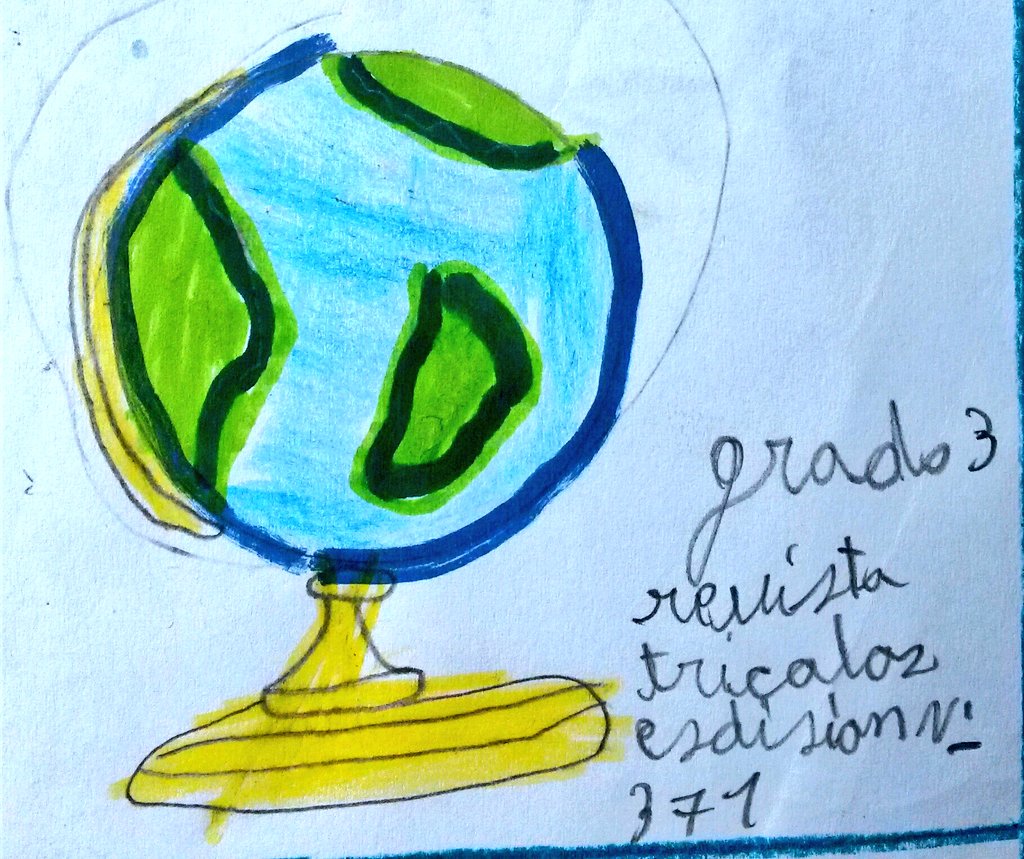 grado 3
revista
triçaloz
esdision Nº
371